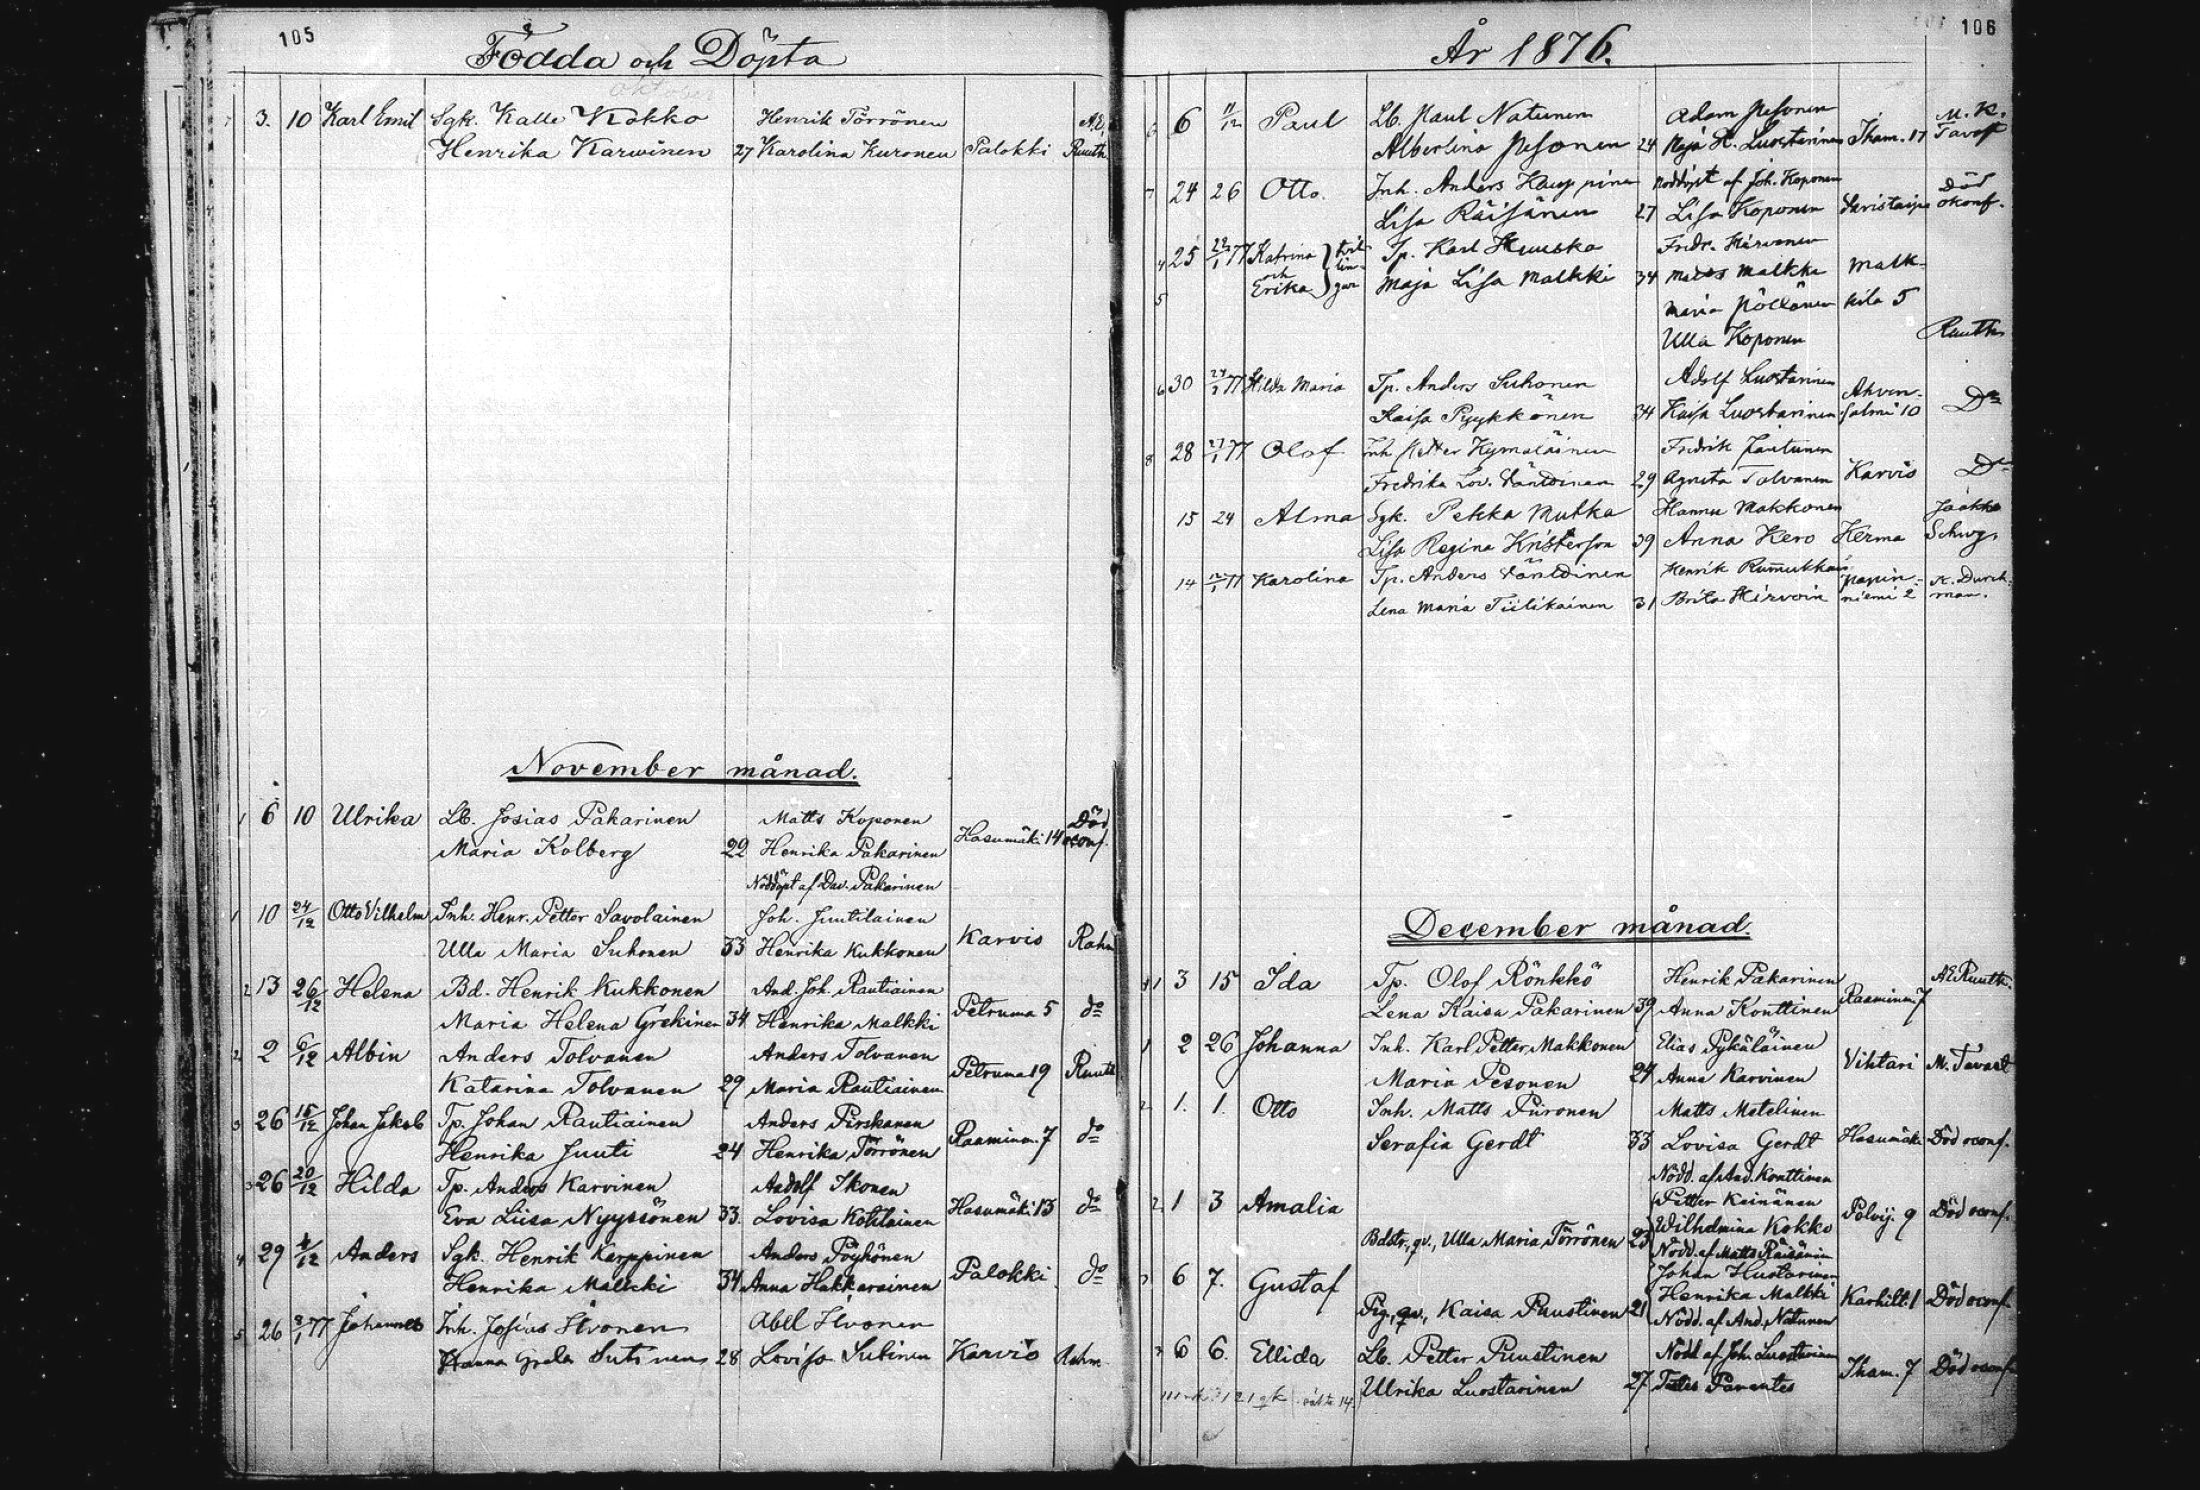 105
Födda och Döpta
oktober
3. 10 Karl Emil Sgk. Kalle Kokko Henrik Törrönen A.E.
Henrika Karwinen 27 Karolina Kuronen Palokki Ruuth
November månad.
1 6 10 Ulrika Lb. Josias Pakarinen Matts Koponen Död
Maria Kolberg 22 Henrika Pakarinen Hasumäki 14 oconf.
Nöddöpt af Dav. Pakarinen
1 10 24/12 Otto Vilhelm Inh. Henr. Petter Savolainen Joh. Juutilainen
Ulla Maria Suhonen 33 Henrika Kukkonen Karvis Rahm
2 13 26/12 Helena Bd. Henrik Kukkonen And. Joh. Rautiainen
Maria Helena Grekinen 34 Henrika Malkki Petruma 5 do
2 2 6/12 Albin Anders Tolvanen Anders Tolvanen
Katarina Tolvanen 29 Maria Rautiainen Petruma 19 Ruuth
3 26 15/12 Johan Jakob Tp. Johan Rautiainen Anders Pirskanen
Henrika Juuti 24 Henrika Törrönen Raaminm. 7 do
3 26 20/12 Hilda Tp. Anders Karvinen Aadolf Ikonen
Eva Liisa Nyyssönen 33. Lovisa Kotilainen Hasumäki 13 do
4 29 4/12 Anders Sgk. Henrik Karppinen Anders Pöyhönen
Henrika Malkki 34 Anna Hakkarainen Palokki do
5 26 2/1 77 Johannes Inh. Josias Ilvonen Abel Ilvonen
Hanna Greta Sutinen 28 Lovisa Sutinen Karvio Rahm.
År 1876.
106
6 11/12 Paul Lb. Paul Natunen Adam Pesonen M. K.
Albertina Pesonen 24 Maja K. Luostarinen Tham. 17 Tavast
24 26 Otto. Inh. Anders Kauppinen Nöddöpt af Joh. Koponen Död
Lisa Räisänen 27 Lisa Koponen Saristaipa okonf.
4 25 22/1 77 Katrina tvil- Tp. Karl Huuska Fredr. Hirvonen
och lin-
Erika gar Maja Lisa Malkki 34 Matts Malkki Malk-
5 Maria Pöllänen kila 5
Ulla Koponen Ruuth
6 30 24/1 77 Hilda Maria Tp. Anders Suhonen Adolf Luostarinen Ahven-
Kaisa Pyykkönen 34 Kaisa Luostarinen salmi 10 Do
8 28 27/1 77 Olof Inh Petter Kymäläinen Fredrik Pautunen
Fredrika Lov. Väntdinen 29 Agneta Tolvanen Karvio Do
15 24 Alma Sgk. Pekka Mutka Hannu Makkonen Jaakko
Lisa Regina Kristerson 39 Anna Kero Kerma Schwg.
14 12/1 77 Karolina Tp. Anders Väntdinen Henrik Rummukkais Papin- K. Durch-
Lena Maria Tiilikainen 31 Brita Hirvoin niemi 2 man.
December månad.
1 3 15 Ida Tp. Olof Rönkkö Henrik Pakarinen A.E. Ruuth.
Lena Kaisa Pakarinen 39 Anna Konttinen Raaminm. 7
1 2 26 Johanna Inh. Karl Petter Makkonen Elias Pykäläinen
Maria Pesonen 24 Anna Karvinen Vihtari M. Tavast
2 1. 1. Otto Inh. Matts Piironen Matts Matelinen
Serafia Gerdt 33 Lovisa Gerdt Hasumäki Död oconf.
Nödd. af And. Konttinen
2 1 3 Amalia Petter Keinänen
Bdstr., qv., Ulla Maria Törrönen 23 Wilhelmina Kokko Polvij. 9 Död oconf.
Nödd. af Matts Räisänen
3 6 7. Gustaf Johan Hustarinen
Henrika Malkki
Pig., qv., Kaisa Puustinen 21 Nödd. af And. Natunen Karhilt. 1 Död oconf.
3 6 6. Ellida Lb. Petter Puustinen Nödd af Joh. Luostarinen
Ulrika Luostarinen 27 Testes Parentes Tham. 7 Död oconf.